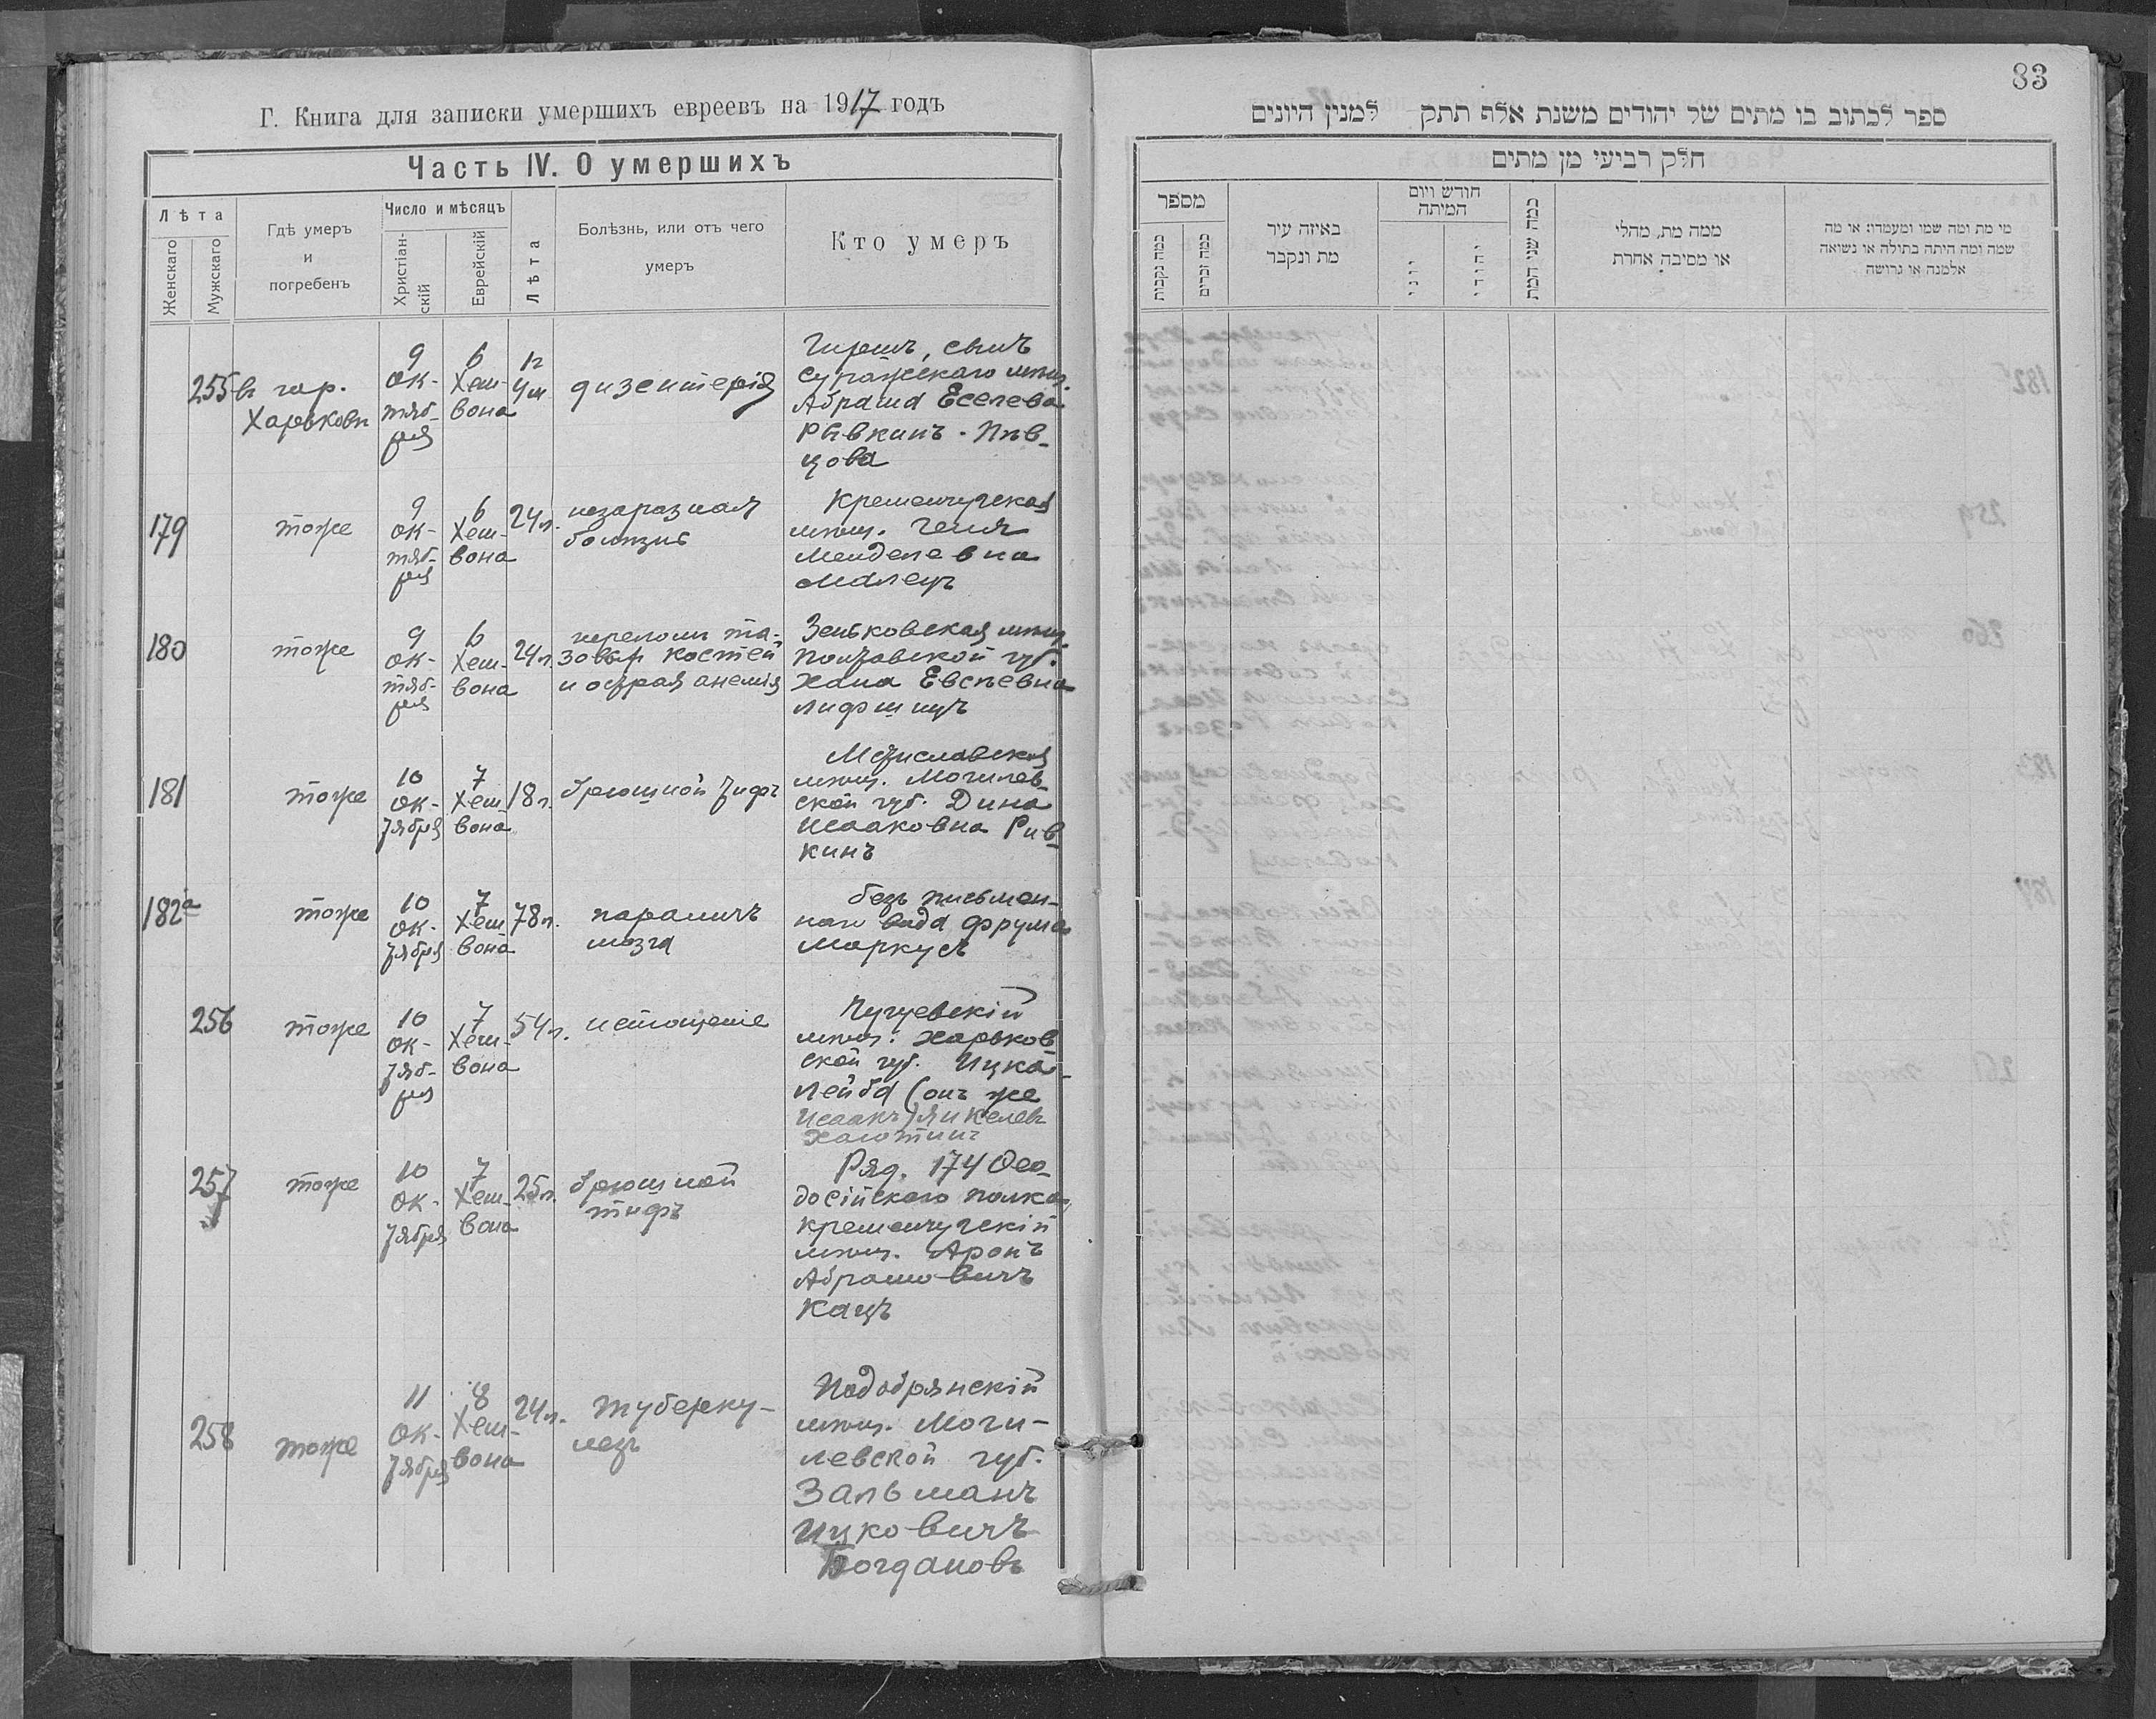 Г. Книга для записки умершихъ евреевъ на 1917 годъ
Часть IV. О умершихъ
Лѣта
Женскаго
Мужскаго
Гдѣ умеръ
и
погребенъ
Число и мѣсяцъ
Христіан-
скій
Еврейскій
Лѣта
Болѣзнь, или отъ чего
умеръ
Кто умеръ
255
въ гор.
Харьковѣ
9
ок-
тяб-
ря
6
Хеш-
вона
1г
4м
дизентерія
Гиршъ, сынъ
Суражскаго мѣщ.
Абрама Еселева
Рывкинъ-Пѣв-
цова
179
тоже
9
ок-
тяб-
ря
6
Хеш-
вона
24л.
незаразная
болѣзнь
Кременчугская
мѣщ. Геня
Менделевна
Малецъ
180
тоже
9
ок-
тяб-
ря
6
Хеш-
вона
24л.
переломъ та-
зовыхъ костей
и острая анемія
Зеньковская мѣщ.
Полтавской губ.
Хана Евсѣевна
Лифшицъ
181
тоже
10
ок-
тября
7
Хеш
вона
18л.
брюшной тифъ
Мстиславская
мѣщ. Могилев-
ской губ. Дина
Исааковна Рив-
кинъ
182а
тоже
10
ок-
тября
7
Хеш
вона
78л.
параличъ
мозга
безъ письмен-
наго вида Фрума
Маркусъ
256
тоже
10
ок-
тяб-
ря
7
Хеш-
вона
54л.
истощеніе
Чугуевскій
мѣщ. Харьков
ской губ. Ицка-
Лейба (онъ же
Исаакъ) Янкелевъ
257
тоже
10
ок-
тября
7
Хеш-
вона
25л.
брюшной
тифъ
Ряд. 174 Ѳео-
досійскаго полка,
Кременчугскій
мѣщ. Аронъ
Абрамовичъ
Кацъ
258
тоже
11
ок-
тября
8
Хеш-
вона
24л.
туберку-
лезъ
Подобрянскій
мѣщ. Моги-
левской губ.
Зальманъ
Ицковичъ
Богдановъ
83
ספר לכתוב בו מתים של יהודים משנת אלף תתק למנין היונים
חלק רביעי מן מתים
מספר
כמה נקבות
כמה זכרים
באיזה עיר
מת ונקבר
חודש ויום
המיתה
יוני
יהודי
כמה שני המת
ממה מת, מחלי
או מסיבה אחרת
מי מת ומה שמו ומעמדו: או מה
שמה ומה היתה בתילה או נשואה
אלמנה או גרושה